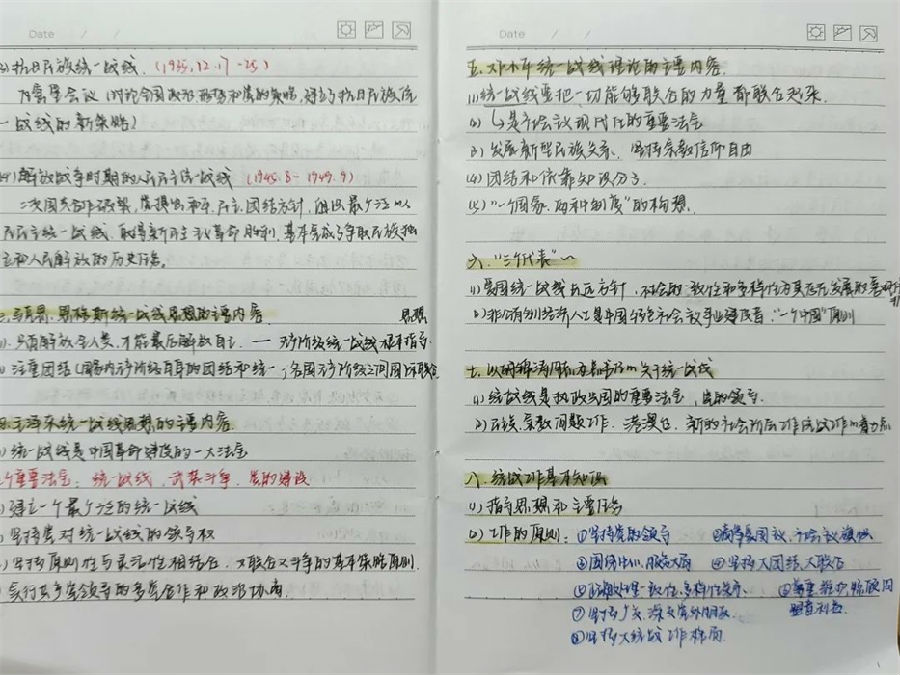 Date / /
(3)抗日民族统一战线.(1935.12.17-25)
瓦窑堡会议(讨论全国政治形势和党的策略,建立了抗日民族统
一战线的新策略)
(4)解放战争时期的人民民主统一战线(1945.8-1949.9)
二次国共合作破裂,党提出和平,民主,团结方针,组成最广泛的人
民民主统一战线,取得新民主主义革命胜利,基本完成了争取民族独
立和人民解放的历史任务。
三.马克思、恩格斯统一战线思想的主要内容.
(1).只有解放全人类,才能最后解放自己.——无产阶级统一战线根本指导思想
(2)注重团结(国内无产阶级自身的团结和统一;各国无产阶级之间国际联合
四.毛泽东统一战线思想的主要内容
(1)统一战线是中国革命建设的一大法宝
三个重要法宝:统一战线,武装斗争,党的建设
建立一个最广泛的统一战线
坚持党对统一战线的领导权
坚持原则性与灵活性相结合,又联合又斗争的基本策略原则.
实行共产党领导的多党合作和政治协商.
Date / /
五.邓小平统一战线理论的主要内容.
(1)统一战线要把一切能够联合的力量都联合起来.
(2)↳是社会主义现代化的重要法宝
(3)发展新型民族关系、坚持宗教信仰自由
(4)团结和依靠知识分子.
(5)"一个国家,两种制度"的构想.
六."三个代表"~
(1)爱国统一战线长远方针,社会的一致性和多样性为其存在发展的
(2)非公有制经济人士是中国特色社会主义事业建设者,"一个中国"原则
七.以胡锦涛同志为总书记的 关于统一战线
(1)统一战线是执政兴国的重要法宝,党的领导.
(2)民族、宗教问题工作,港澳台,新的社会阶层工作 统战工作的着力点
八.统战工作基本知识
(1)指导思想和主要任务
(2)工作的原则:①坚持党的领导 ②高举爱国主义,社会主义旗帜
③围绕中心,服务大局 ④坚持大团结,大联合
⑤正确处理一致性,多样性关系. ⑥尊重,维护,照顾同
⑦坚持广交,深交党外朋友. 盟者利益
⑧坚持大统战工作格局